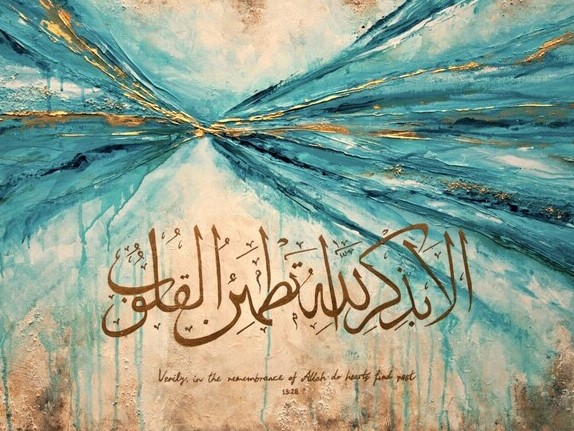 الا بذكر الله تطمئن القلوب
Verily, in the remembrance of Allah do hearts find rest
13:28